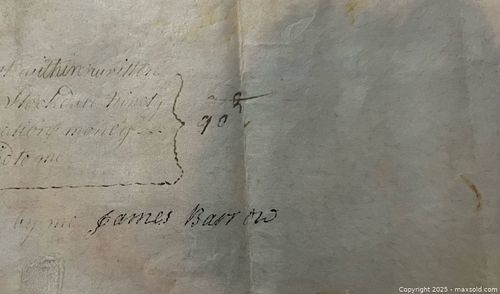 within written
Stockdale Ninety
money
90£
to me
by me James Barrow
Copyright 2025 - maxsold.com